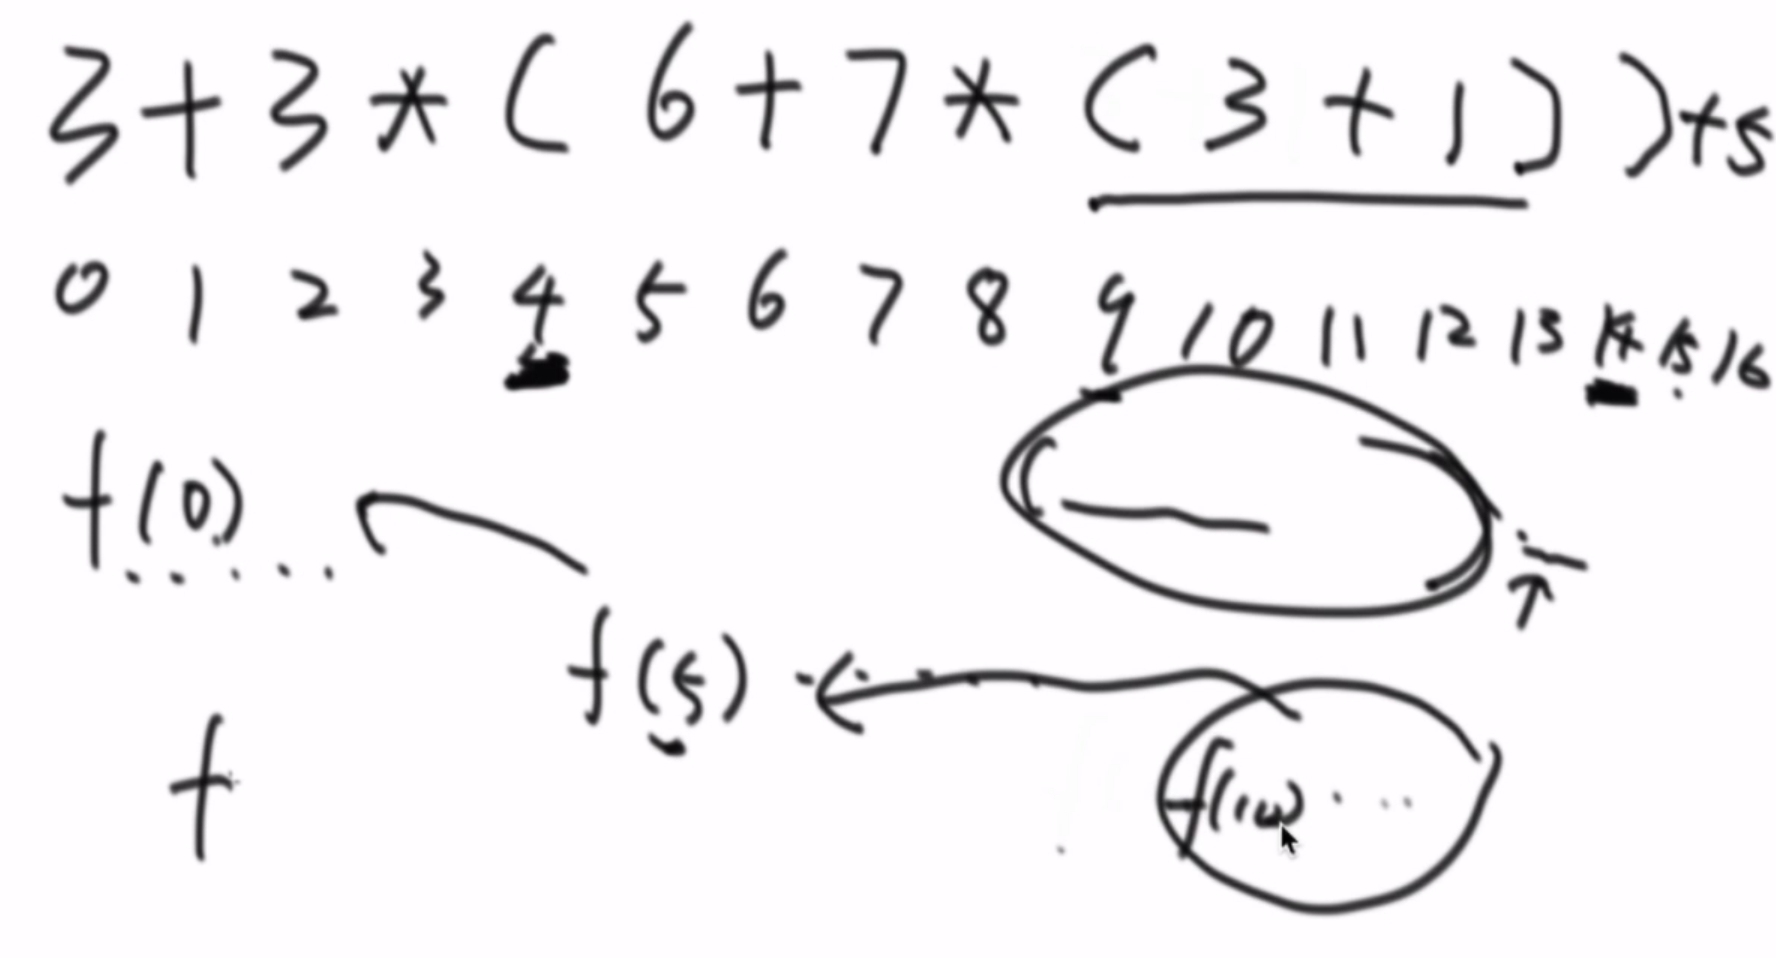 3+3*(6+7*(3+1))+5
0 1 2 3 4 5 6 7 8 9 10 11 12 13 14 15 16
f(0)
f(5)
f
f(10)